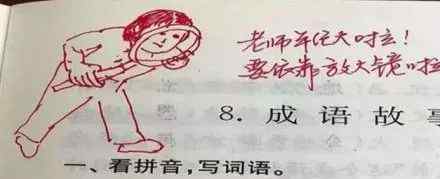 老师年纪大啦！
要依靠放大镜啦
8. 成语故事
一、看拼音，写词语。